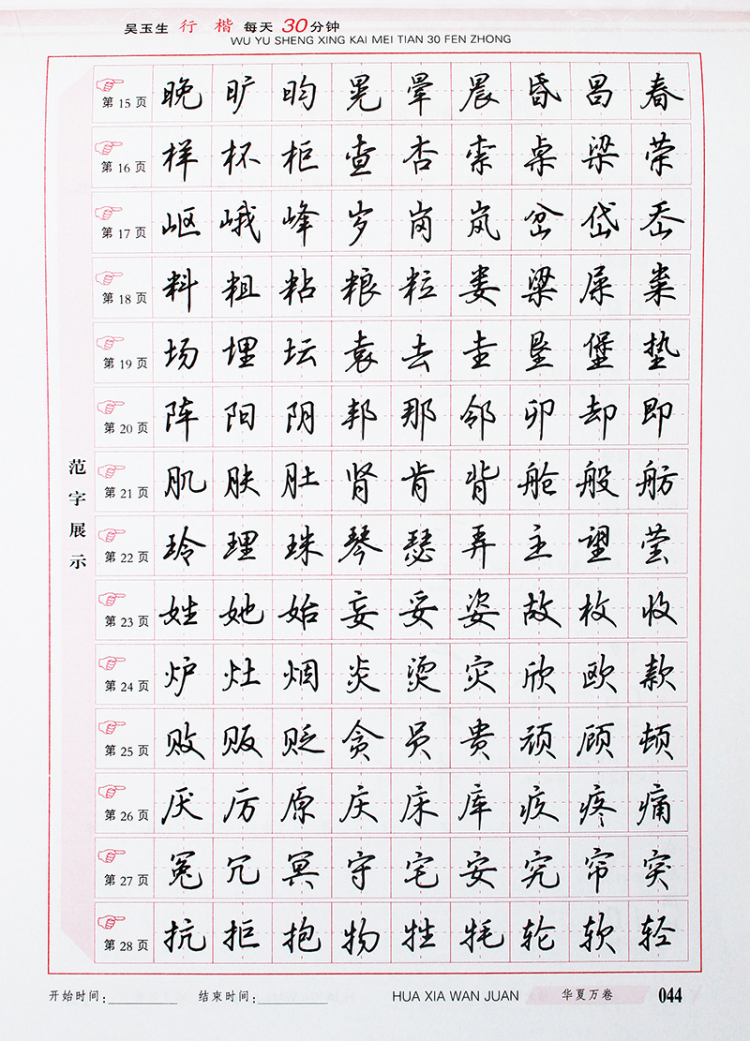 吴玉生 行楷 每天30分钟
WU YU SHENG XING KAI MEI TIAN 30 FEN ZHONG
范字展示
第15页 晚 旷 昀 晃 晕 晨 昏 昌 春
第16页 样 杯 柜 查 杏 柰 桌 梁 荣
第17页 岖 峨 峰 岁 岗 岚 岔 岱 岙
第18页 料 粗 粘 粮 粒 娄 粱 屎 粜
第19页 场 埋 坛 袁 去 圭 垦 堡 垫
第20页 阵 阳 阴 邦 那 邻 卯 却 即
第21页 肌 肤 肚 肾 肯 背 舱 般 舫
第22页 玲 理 珠 琴 瑟 弄 主 望 莹
第23页 姓 她 始 妄 妥 姿 故 枚 收
第24页 炉 灶 烟 炎 烫 灾 欣 欧 款
第25页 败 贩 贬 贪 员 贵 顽 顾 顿
第26页 厌 厉 原 庆 床 库 疫 疼 痛
第27页 冤 冗 冥 守 宅 安 究 帘 突
第28页 抗 拒 抱 物 牲 牦 轮 软 轻
开始时间: 结束时间: HUA XIA WAN JUAN 华夏万卷 044